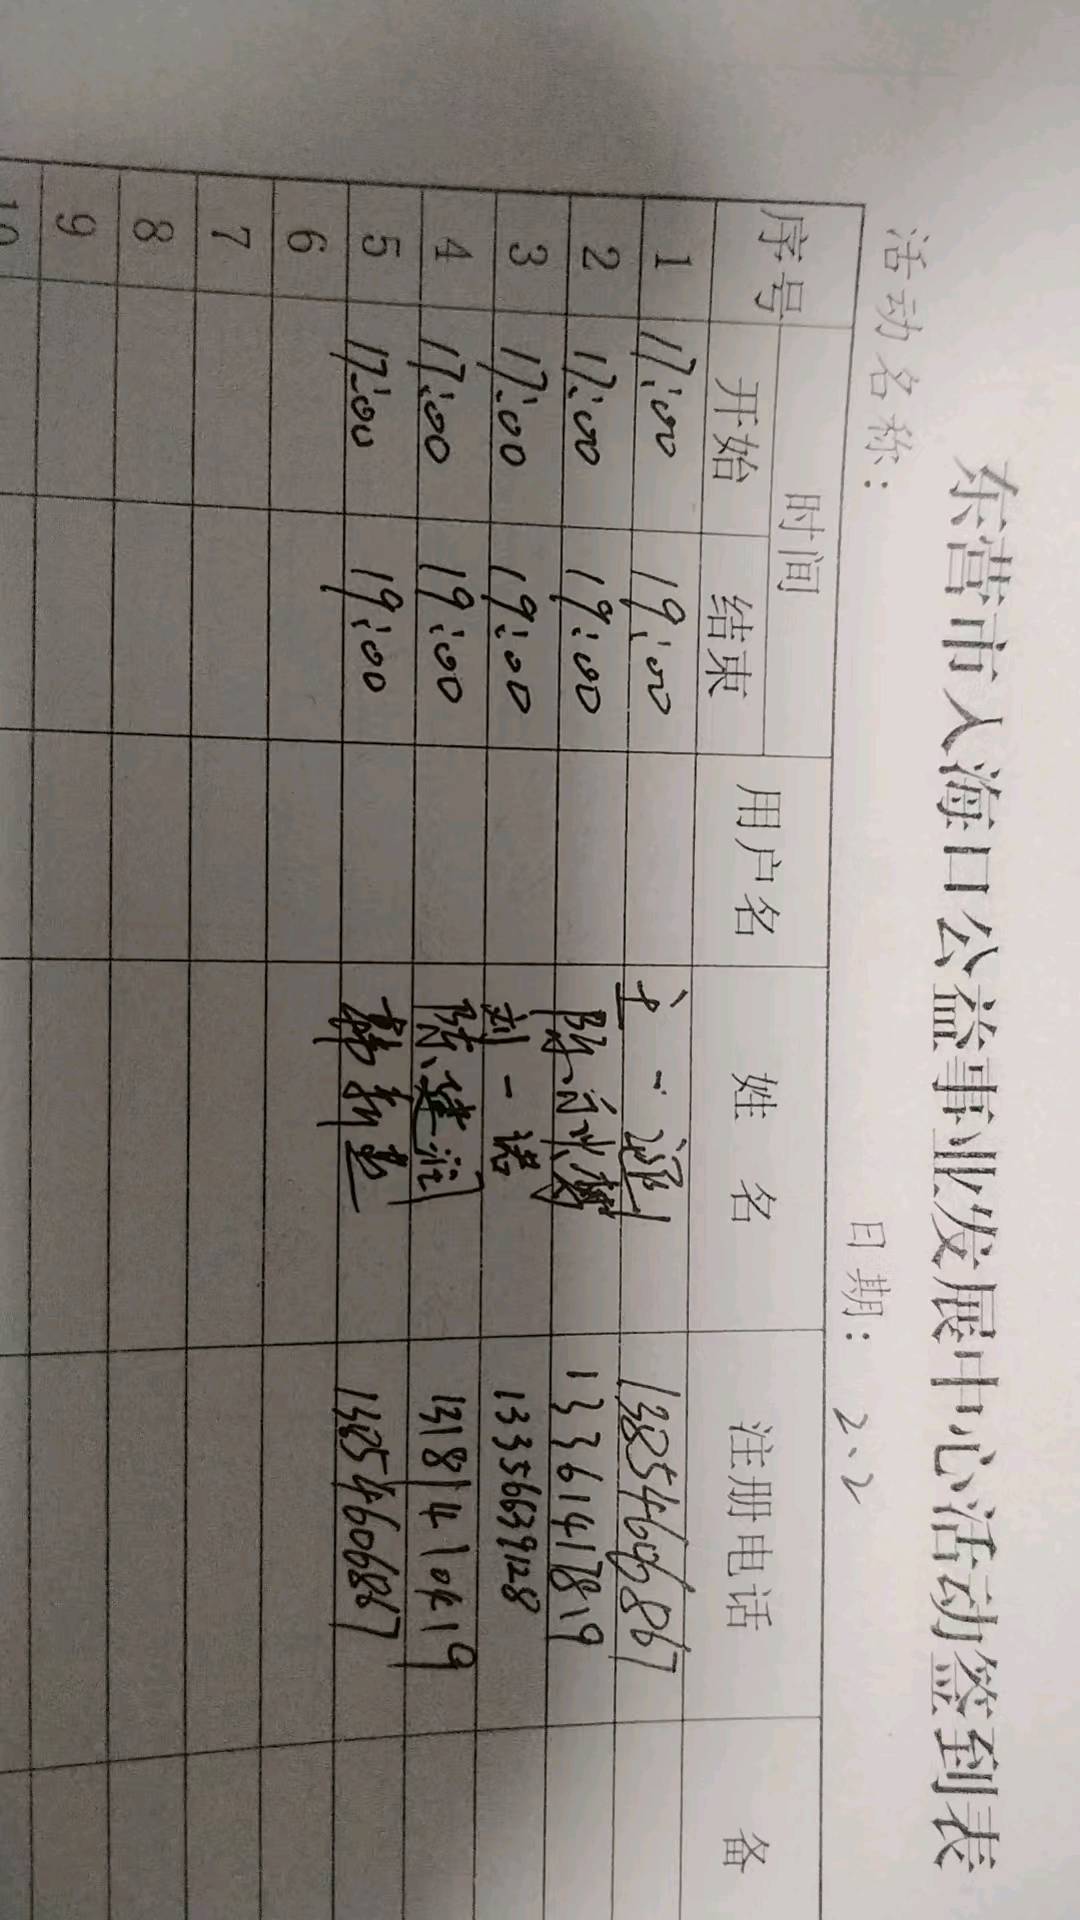 东营市入海口公益事业发展中心活动签到表
活动名称： 日期：2.2
序号 时间 用户名 姓 名 注册电话 备
开始 结束
1 17:00 19:00
2 17:00 19:00 13361417819
3 17:00 19:00 刘一诺 13356639128
4 17:00 19:00 陈建 13181410419
5 17:00 19:00 韩 13854606867
6
7
8
9
10